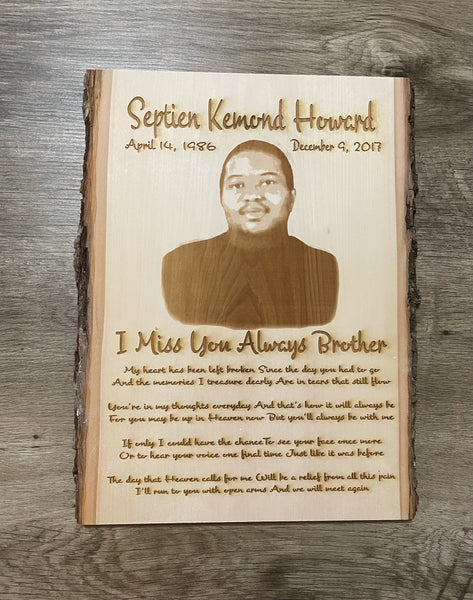 Septien Kemond Howard
April 14, 1986 December 9, 2017
I Miss You Always Brother
My heart has been left broken Since the day you had to go
And the memories I treasure dearly Are in tears that still flow
You're in my thoughts everyday And that's how it will always be
For you may be up in Heaven now But you'll always be with me
If only I could have the chanceTo see your face once more
Or to hear your voice one final time Just like it was before
The day that Heaven calls for me Will be a relief from all this pain
I'll run to you with open arms And we will meet again